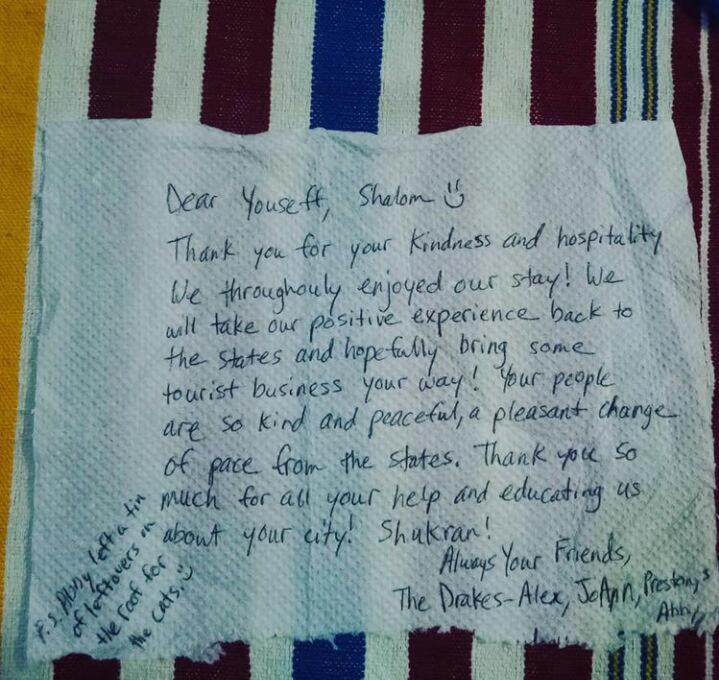 Dear Youseft, Shalom
Thank you for your kindness and hospitality
We throughouly enjoyed our stay! We
will take our positive experience back to
the states and hopefully bring some
tourist business your way! Your people
are so kind and peaceful, a pleasant change
of pace from the states. Thank you so
much for all your help and educating us
about your city! Shukran!
Always Your Friends,
The Drakes-Alex, JoAnn, Preston, &
Abby
P.S. Abby left a tin
of leftovers on
the roof for
the cats.